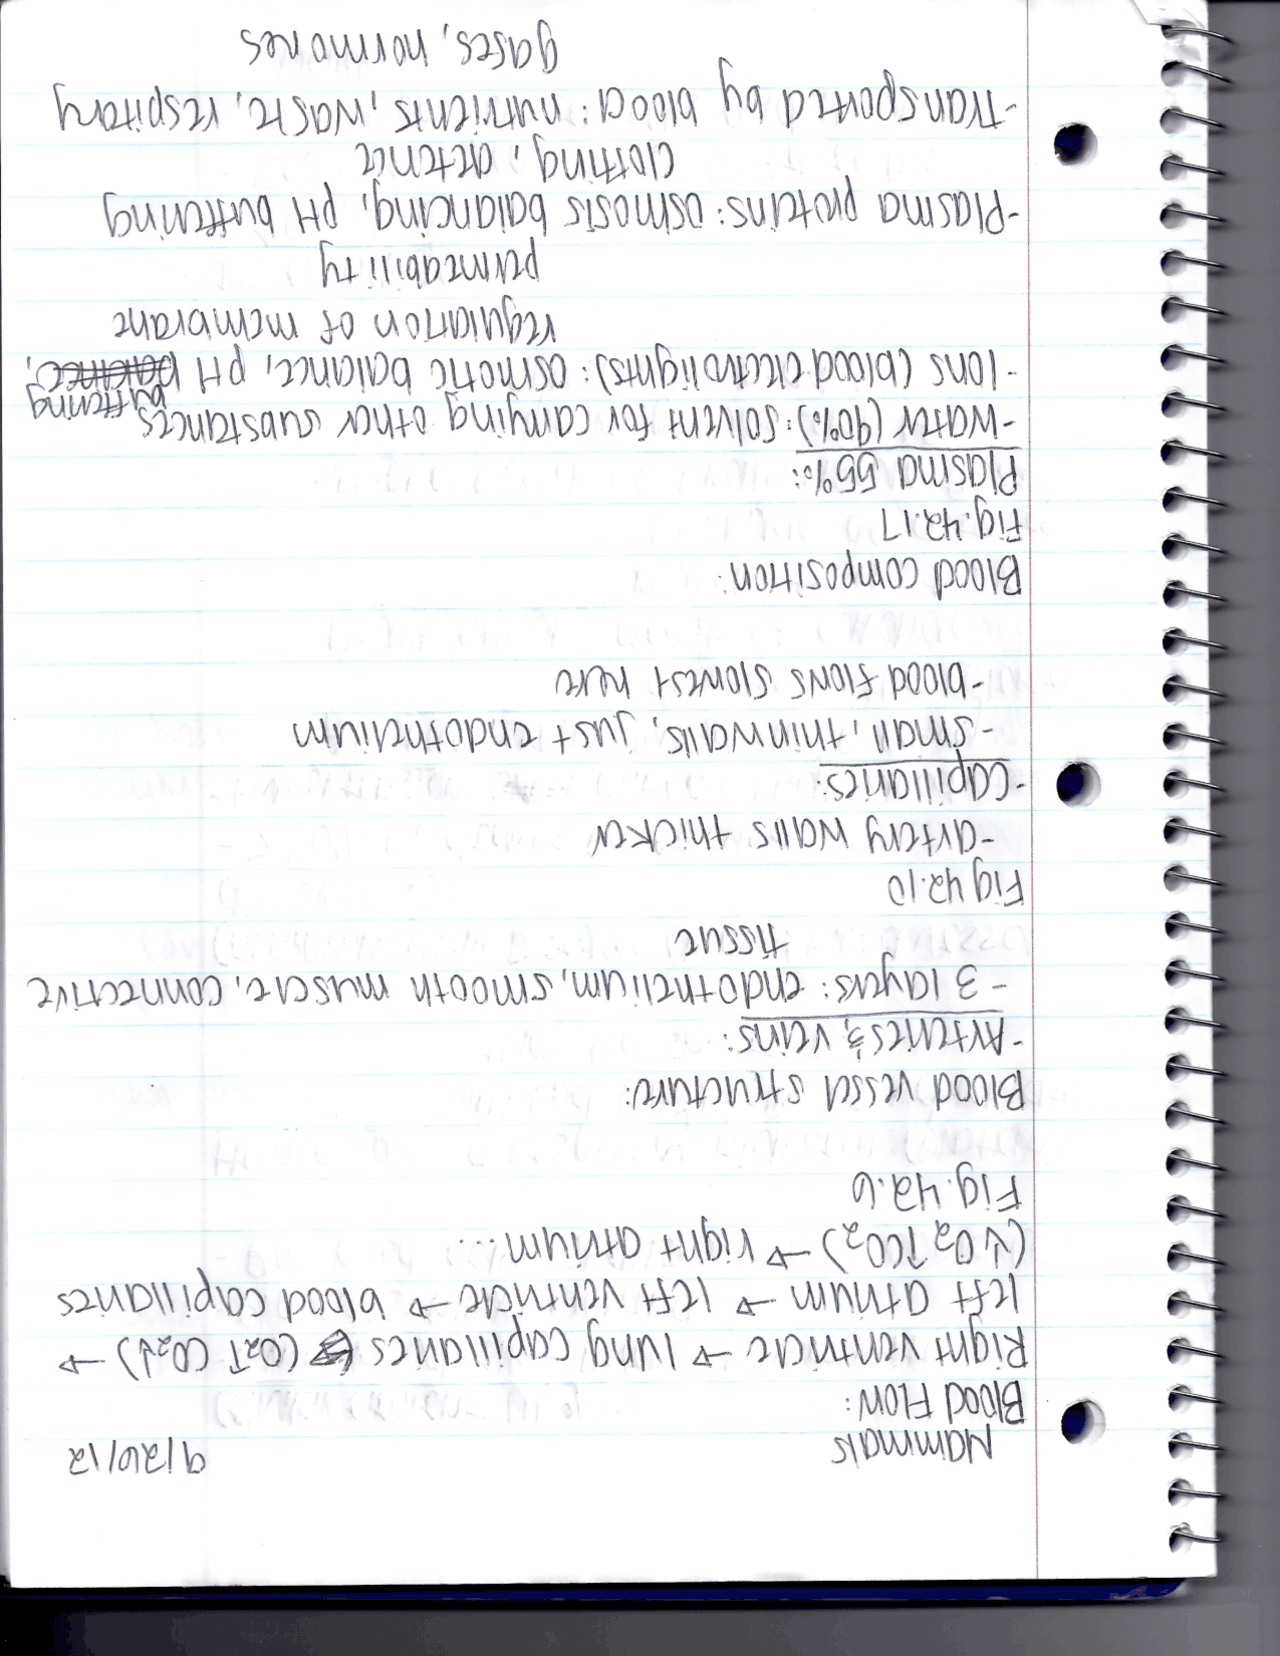 Mammals 9/26/12
Blood Flow:
Right ventricle → lung capillaries (O2↑ CO2↓) →
left atrium → left ventricle → blood capillaries
(↓O2 ↑CO2) → right atrium...
Fig. 42.6
Blood vessel structure:
-Arteries & veins:
- 3 layers: endothelium, smooth muscle, connective
tissue
Fig 42.10
-artery walls thicker
-capillaries:
-small, thin walls, just endothelium
-blood flows slowest here
Blood composition:
Fig. 42.17
Plasma 55%:
-Water (90%): solvent for carrying other substances
-Ions (blood electrolights): osmotic balance, pH balance, buffering
regulation of membrane
permeability
-Plasma proteins: osmosis balancing, pH buffering
clotting, defence
-Transported by blood: nutrients, waste, respitory
gases, hormones